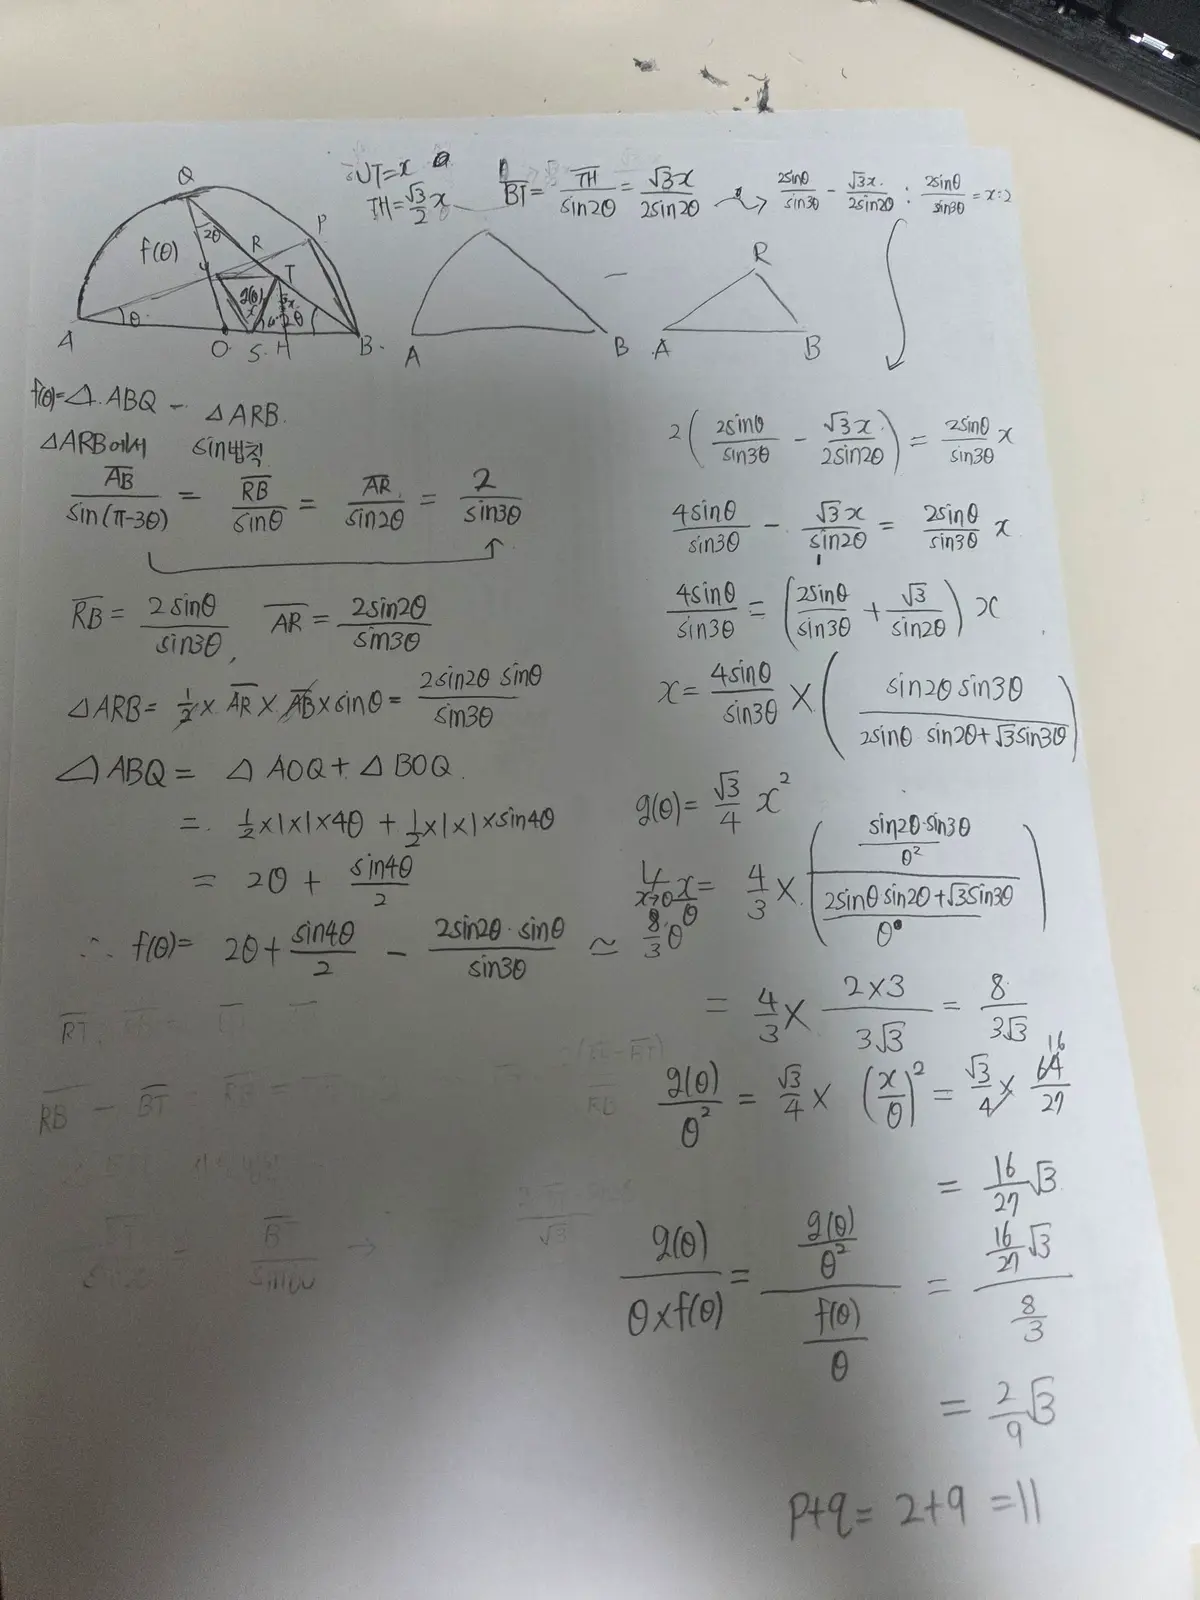 UT=x
TH=√3/2 x
BT= TH/sin2θ = √3x/2sin2θ → 2sinθ/sin3θ - √3x/2sin2θ : 2sinθ/sin3θ = x:2
Q
P
2θ
R
f(θ)
T
g(θ)
x
A
θ
2θ
O
S
H
B
A
B
-
R
A
B
f(θ)=△ABQ - △ARB.
△ARB에서 sin법칙
AB/sin(π-3θ) = RB/sinθ = AR/sin2θ = 2/sin3θ
RB = 2sinθ/sin3θ, AR = 2sin2θ/sin3θ
△ARB= 1/2 × AR × AB × sinθ = 2sin2θ sinθ/sin3θ
△ABQ = △AOQ + △BOQ
= 1/2×1×1×4θ + 1/2×1×1×sin4θ
= 2θ + sin4θ/2
∴ f(θ)= 2θ + sin4θ/2 - 2sin2θ·sinθ/sin3θ ≃ 8/3 θ
RT
RB - BT
2(2sinθ/sin3θ - √3x/2sin2θ) = 2sinθ/sin3θ x
4sinθ/sin3θ - √3x/sin2θ = 2sinθ/sin3θ x
4sinθ/sin3θ = (2sinθ/sin3θ + √3/sin2θ) x
x= 4sinθ/sin3θ × (sin2θ sin3θ/2sinθ sin2θ+√3sin3θ)
g(θ)= √3/4 x²
x/θ = 4/3 × (sin2θ·sin3θ/θ² / 2sinθ sin2θ+√3sin3θ/θ)
= 4/3 × 2×3/3√3 = 8/3√3
g(θ)/θ² = √3/4 × (x/θ)² = √3/4 × 64/27 16
= 16/27 √3
g(θ)/θ×f(θ) = g(θ)/θ² / f(θ)/θ = 16/27 √3 / 8/3
= 2/9 √3
P+q= 2+9 =11